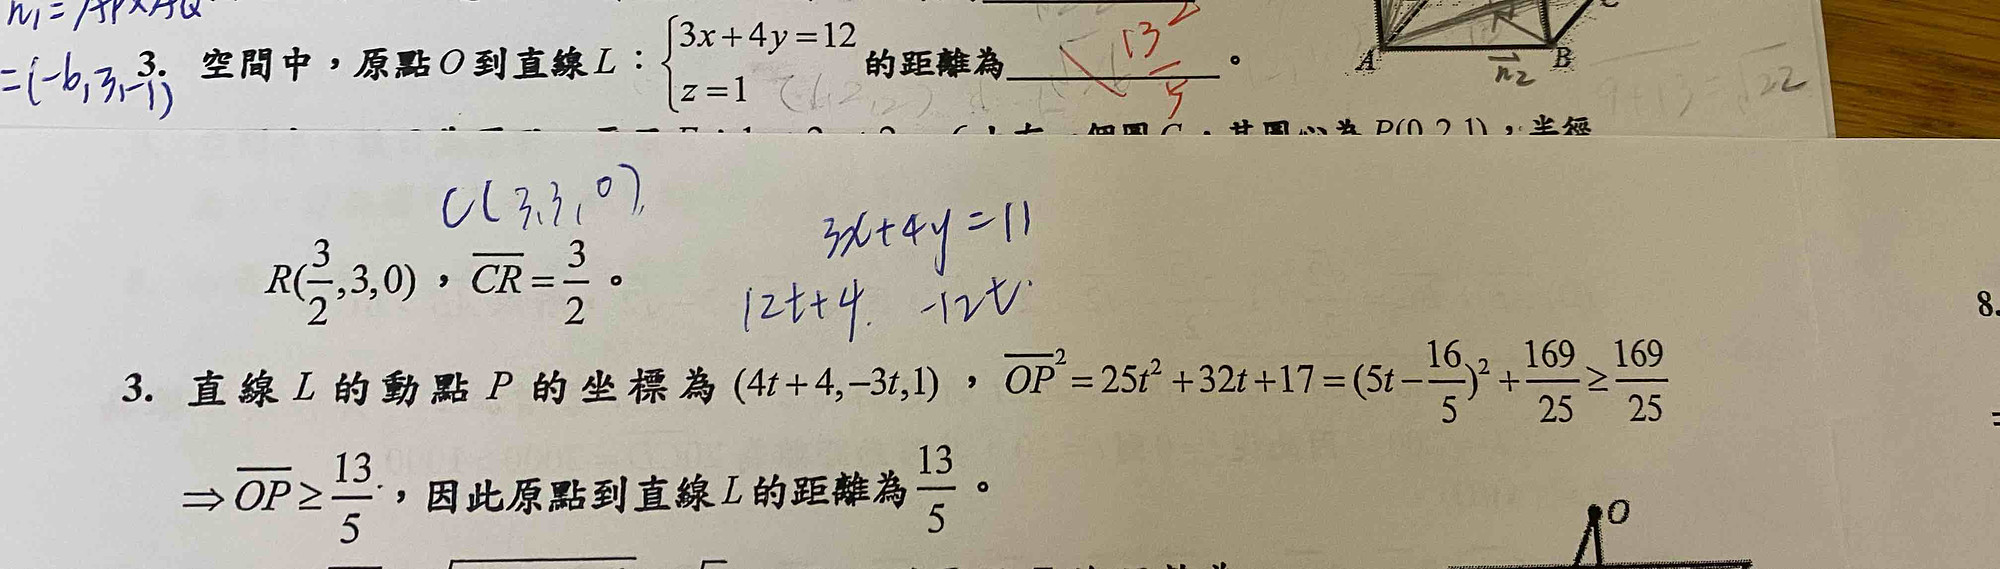 n₁ = AP×AQ
=(-6,3,-1)
3. 空間中，原點O到直線L：{3x+4y=12, z=1 的距離為 13/5 。
A n₂ B
√22
P(0,2,1)，半徑
C(3,3,0),
3x+4y=11
R(3/2,3,0)，CR=3/2。
12t+4. -12t
8.
3. 直線L的動點P的坐標為(4t+4,−3t,1)，OP²=25t²+32t+17=(5t−16/5)²+169/25≥169/25
⇒OP≥13/5，因此原點到直線L的距離為13/5。
O